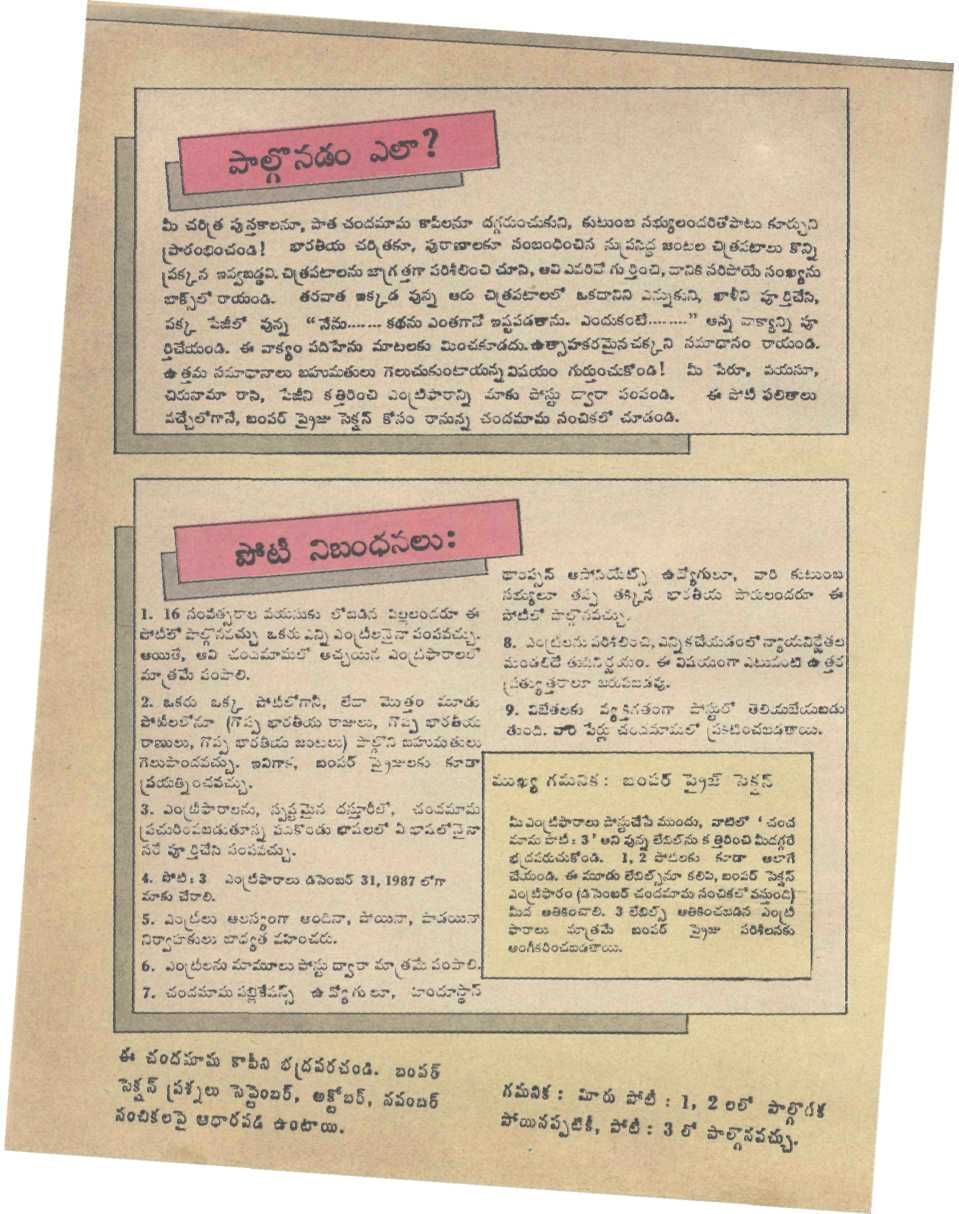 పాల్గొనడం ఎలా?
మీ చరిత్ర పుస్తకాలనూ, పాత చందమామ కాపీలనూ దగ్గరుంచుకుని, కుటుంబ సభ్యులందరితోపాటు కూర్చుని
ప్రారంభించండి! భారతీయ చరిత్రకూ, పురాణాలకూ సంబంధించిన సుప్రసిద్ధ జంటల చిత్రపటాలు కొన్ని
ప్రక్కన ఇవ్వబడ్డవి. చిత్రపటాలను జాగ్రత్తగా పరిశీలించి చూసి, అవి ఎవరివో గుర్తించి, దానికి సరిపోయే సంఖ్యను
బాక్స్‌లో రాయండి. తరవాత ఇక్కడ వున్న ఆరు చిత్రపటాలలో ఒకదానిని ఎన్నుకుని, ఖాళీని పూర్తిచేసి,
పక్క పేజీలో వున్న "నేను....... కథను ఎంతగానో ఇష్టపడతాను. ఎందుకంటే........" అన్న వాక్యాన్ని పూ
ర్తిచేయండి. ఈ వాక్యం పదిహేను మాటలకు మించకూడదు. ఉత్సాహకరమైన చక్కని సమాధానం రాయండి.
ఉత్తమ సమాధానాలు బహుమతులు గెలుచుకుంటాయన్న విషయం గుర్తుంచుకోండి! మీ పేరూ, వయసూ,
చిరునామా రాసి, పేజీని కత్తిరించి ఎంట్రిఫారాన్ని మాకు పోస్టు ద్వారా పంపండి. ఈ పోటీ ఫలితాలు
వచ్చేలోగానే, బంపర్ ప్రైజు సెక్షన్ కోసం రానున్న చందమామ సంచికలో చూడండి.
పోటీ నిబంధనలు:
1. 16 సంవత్సరాల వయసుకు లోబడిన పిల్లలందరూ ఈ
పోటీలో పాల్గొనవచ్చు ఒకరు ఎన్ని ఎంట్రీలనైనా పంపవచ్చు.
అయితే, అవి చందమామలో అచ్చయిన ఎంట్రిఫారాలలో
మాత్రమే పంపాలి.
2. ఒకరు ఒక్క పోటీలోగానీ, లేదా మొత్తం మూడు
పోటీలలోనూ (గొప్ప భారతీయ రాజులు, గొప్ప భారతీయ
రాణులు, గొప్ప భారతీయ జంటలు) పాల్గొని బహుమతులు
గెలుపొందవచ్చు. ఇవిగాక, బంపర్ ప్రైజులకు కూడా
ప్రయత్నించవచ్చు.
3. ఎంట్రిఫారాలను, స్పష్టమైన దస్తూరీలో, చందమామ
ప్రచురింపబడుతూన్న పదకొండు భాషలలో ఏ భాషలోనైనా
సరే పూర్తిచేసి పంపవచ్చు.
4. పోటీ: 3 ఎంట్రిఫారాలు డిసెంబర్ 31, 1987 లోగా
మాకు చేరాలి.
5. ఎంట్రీలు ఆలస్యంగా అందినా, పోయినా, పాడయినా
నిర్వాహకులు బాధ్యత వహించరు.
6. ఎంట్రీలను మామూలు పోస్టు ద్వారా మాత్రమే పంపాలి.
7. చందమామ పబ్లికేషన్స్ ఉద్యోగులూ, హిందూస్థాన్
థాంప్సన్ అసోసియేట్స్ ఉద్యోగులూ, వారి కుటుంబ
సభ్యులూ తప్ప తక్కిన భారతీయ పౌరులందరూ ఈ
పోటీలో పాల్గొనవచ్చు.
8. ఎంట్రీలను పరిశీలించి, ఎన్నికచేయడంలో న్యాయనిర్ణేతల
మండలిదే తుదినిర్ణయం. ఈ విషయంగా ఎటువంటి ఉత్తర
ప్రత్యుత్తరాలూ జరుపబడవు.
9. విజేతలకు వ్యక్తిగతంగా పోస్టులో తెలియజేయబడు
తుంది. వారి పేర్లు చందమామలో ప్రకటించబడతాయి.
ముఖ్య గమనిక: బంపర్ ప్రైజ్ సెక్షన్
మీ ఎంట్రిఫారాలు పోస్టుచేసే ముందు, వాటిలో 'చంద
మామ పోటీ: 3' అని వున్న లేబిల్‌ను కత్తిరించి మీదగ్గరే
భద్రపరుచుకోండి. 1, 2 పోటీలకు కూడా అలాగే
చేయండి. ఈ మూడు లేబిల్స్‌నూ కలిపి, బంపర్ సెక్షన్
ఎంట్రిఫారం (డిసెంబర్ చందమామ సంచికలో వస్తుంది)
మీద అతికించాలి. 3 లేబిల్స్ అతికించబడిన ఎంట్రి
ఫారాలు మాత్రమే బంపర్ ప్రైజు పరిశీలనకు
అంగీకరించబడతాయి.
ఈ చందమామ కాపీని భద్రపరచండి. బంపర్
సెక్షన్ ప్రశ్నలు సెప్టెంబర్, అక్టోబర్, నవంబర్
సంచికలపై ఆధారపడి ఉంటాయి.
గమనిక: మీరు పోటీ: 1, 2 లలో పాల్గొనక
పోయినప్పటికీ, పోటీ: 3 లో పాల్గొనవచ్చు.